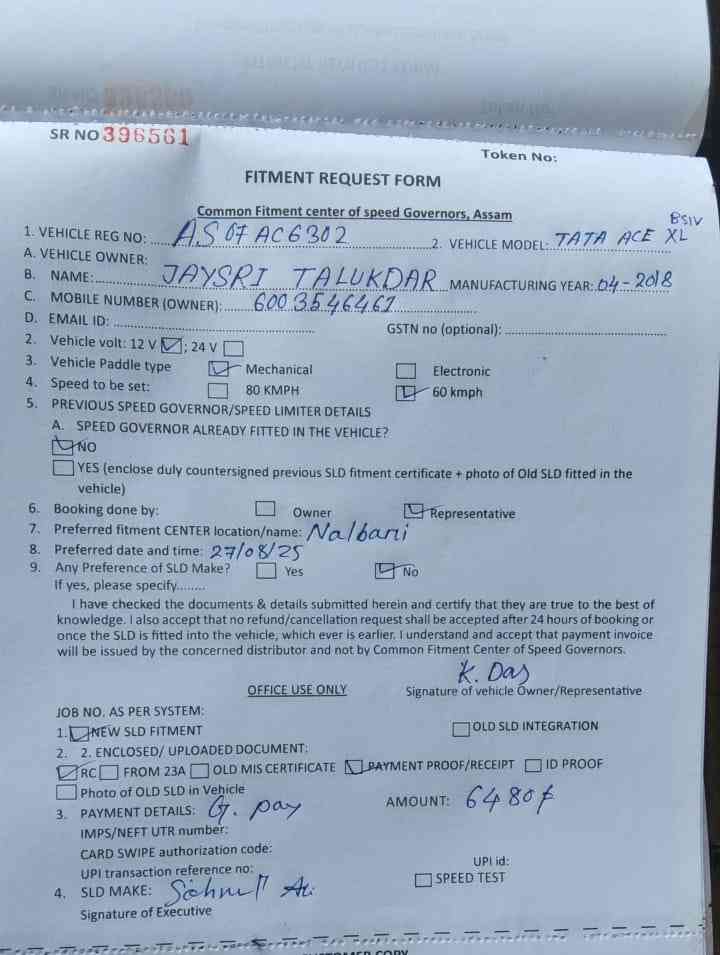 SR NO 396561
Token No:
FITMENT REQUEST FORM
Common Fitment center of speed Governors, Assam
BSIV
1. VEHICLE REG NO: AS 07 AC 6302 2. VEHICLE MODEL: TATA ACE XL
A. VEHICLE OWNER:
B. NAME: JAYSRI TALUKDAR MANUFACTURING YEAR: 04-2018
C. MOBILE NUMBER (OWNER): 6003546467
D. EMAIL ID: GSTN no (optional):
2. Vehicle volt: 12 V ; 24 V
3. Vehicle Paddle type Mechanical Electronic
4. Speed to be set: 80 KMPH 60 kmph
5. PREVIOUS SPEED GOVERNOR/SPEED LIMITER DETAILS
A. SPEED GOVERNOR ALREADY FITTED IN THE VEHICLE?
NO
YES (enclose duly countersigned previous SLD fitment certificate + photo of Old SLD fitted in the
vehicle)
6. Booking done by: Owner Representative
7. Preferred fitment CENTER location/name: Nalbari
8. Preferred date and time: 27/08/25
9. Any Preference of SLD Make? Yes No
If yes, please specify........
I have checked the documents & details submitted herein and certify that they are true to the best of
knowledge. I also accept that no refund/cancellation request shall be accepted after 24 hours of booking or
once the SLD is fitted into the vehicle, which ever is earlier. I understand and accept that payment invoice
will be issued by the concerned distributor and not by Common Fitment Center of Speed Governors.
K. Das
OFFICE USE ONLY Signature of vehicle Owner/Representative
JOB NO. AS PER SYSTEM:
1. NEW SLD FITMENT OLD SLD INTEGRATION
2. 2. ENCLOSED/ UPLOADED DOCUMENT:
RC FROM 23A OLD MIS CERTIFICATE PAYMENT PROOF/RECEIPT ID PROOF
Photo of OLD SLD in Vehicle
3. PAYMENT DETAILS: G. pay AMOUNT: 6480
IMPS/NEFT UTR number:
CARD SWIPE authorization code:
UPI transaction reference no: UPI id:
4. SLD MAKE: SPEED TEST
Signature of Executive